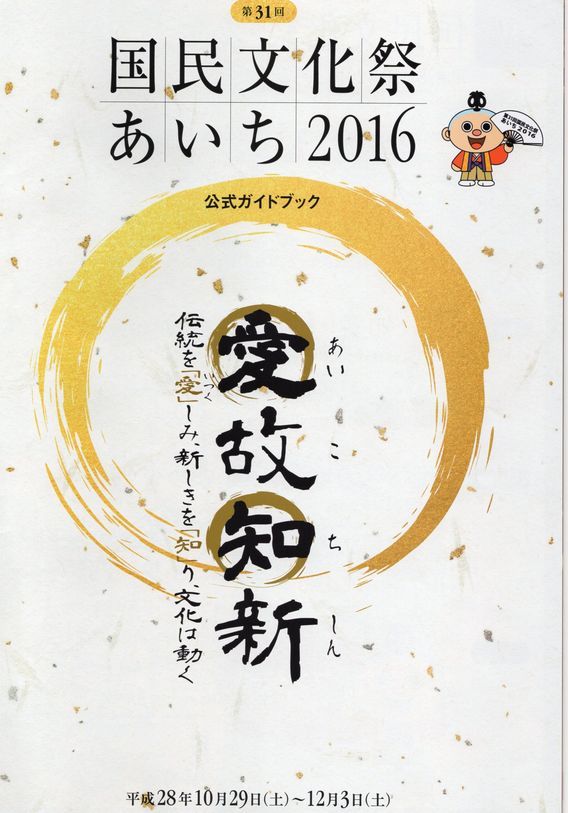 第31回
国民文化祭
あいち2016
第31回国民文化祭
あいち2016
公式ガイドブック
愛故知新
あいこちしん
伝統を「愛」しみ、新しきを「知」り、文化は動く
いつく
平成28年10月29日(土)～12月3日(土)